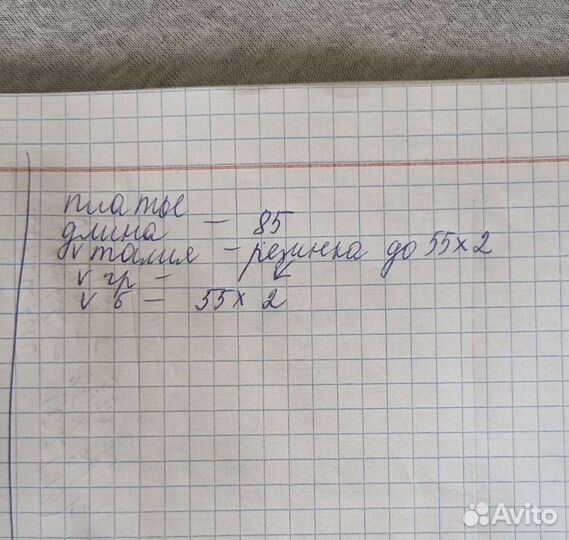 платье
длина - 85
V талия - резинка до 55 х 2
V гр - ↙
V б - 55 х 2
Avito